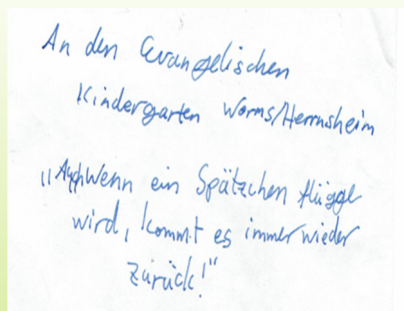 An den Evangelischen
Kindergarten Worms/Herrnsheim
"Auch Wenn ein Spätzchen flügge
wird, kommt es immer wieder
zurück!"